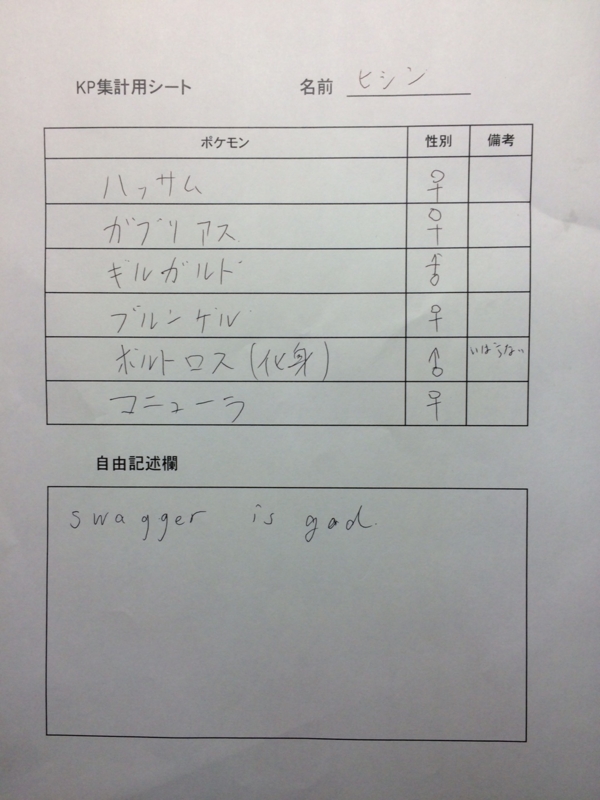 KP集計用シート 名前 ヒシン
ポケモン 性別 備考
ハッサム ♀
ガブリアス ♀
ギルガルド ♂
ブルンゲル ♀
ボルトロス(化身) ♂ いばらない
マニューラ ♀
自由記述欄
swagger is god.